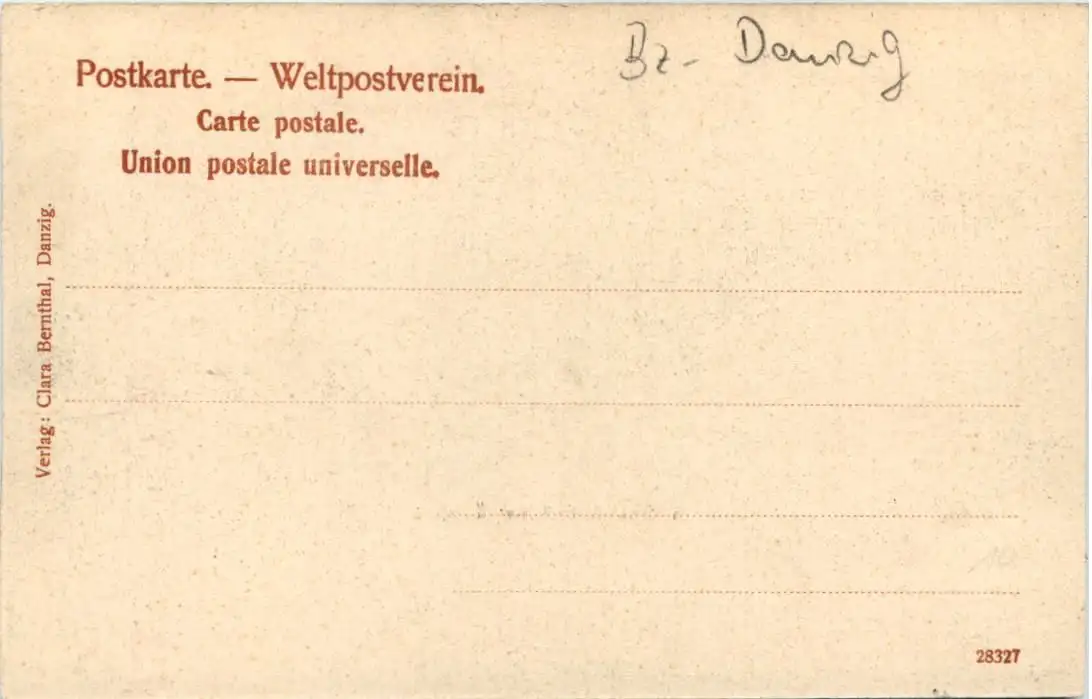 Bz- Danzig
Postkarte. — Weltpostverein.
Carte postale.
Union postale universelle.
Verlag: Clara Bernthal, Danzig.
10
28327